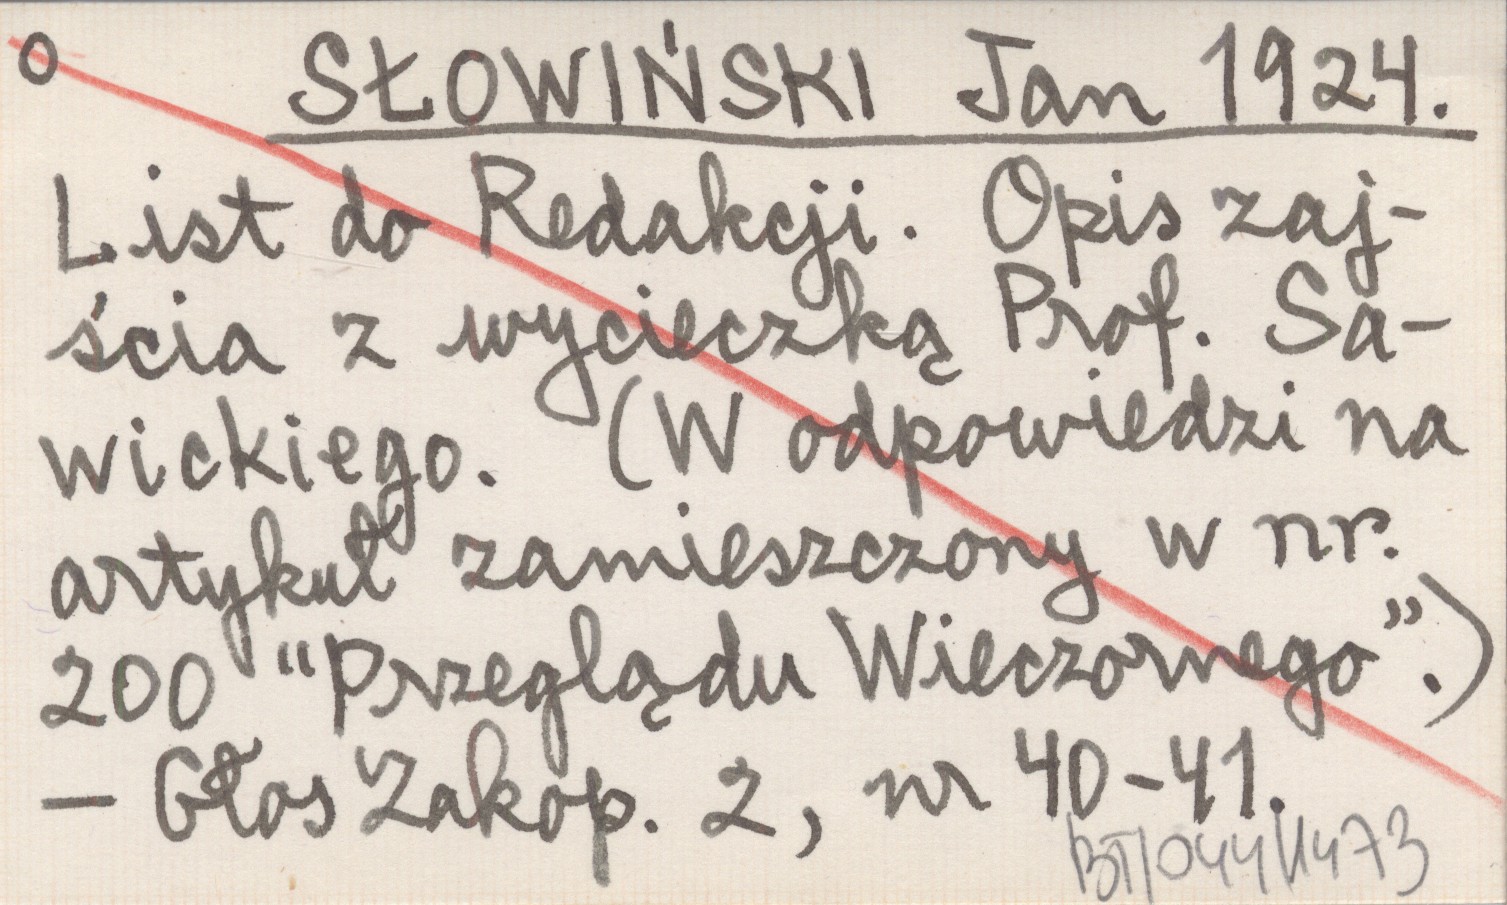 o SŁOWIŃSKI Jan 1924.
List do Redakcji. Opis zaj-
ścia z wycieczką Prof. Sa-
wickiego. (W odpowiedzi na
artykuł zamieszczony w nr.
200 "Przeglądu Wieczornego".)
— Głos Zakop. 2, nr 40-41.